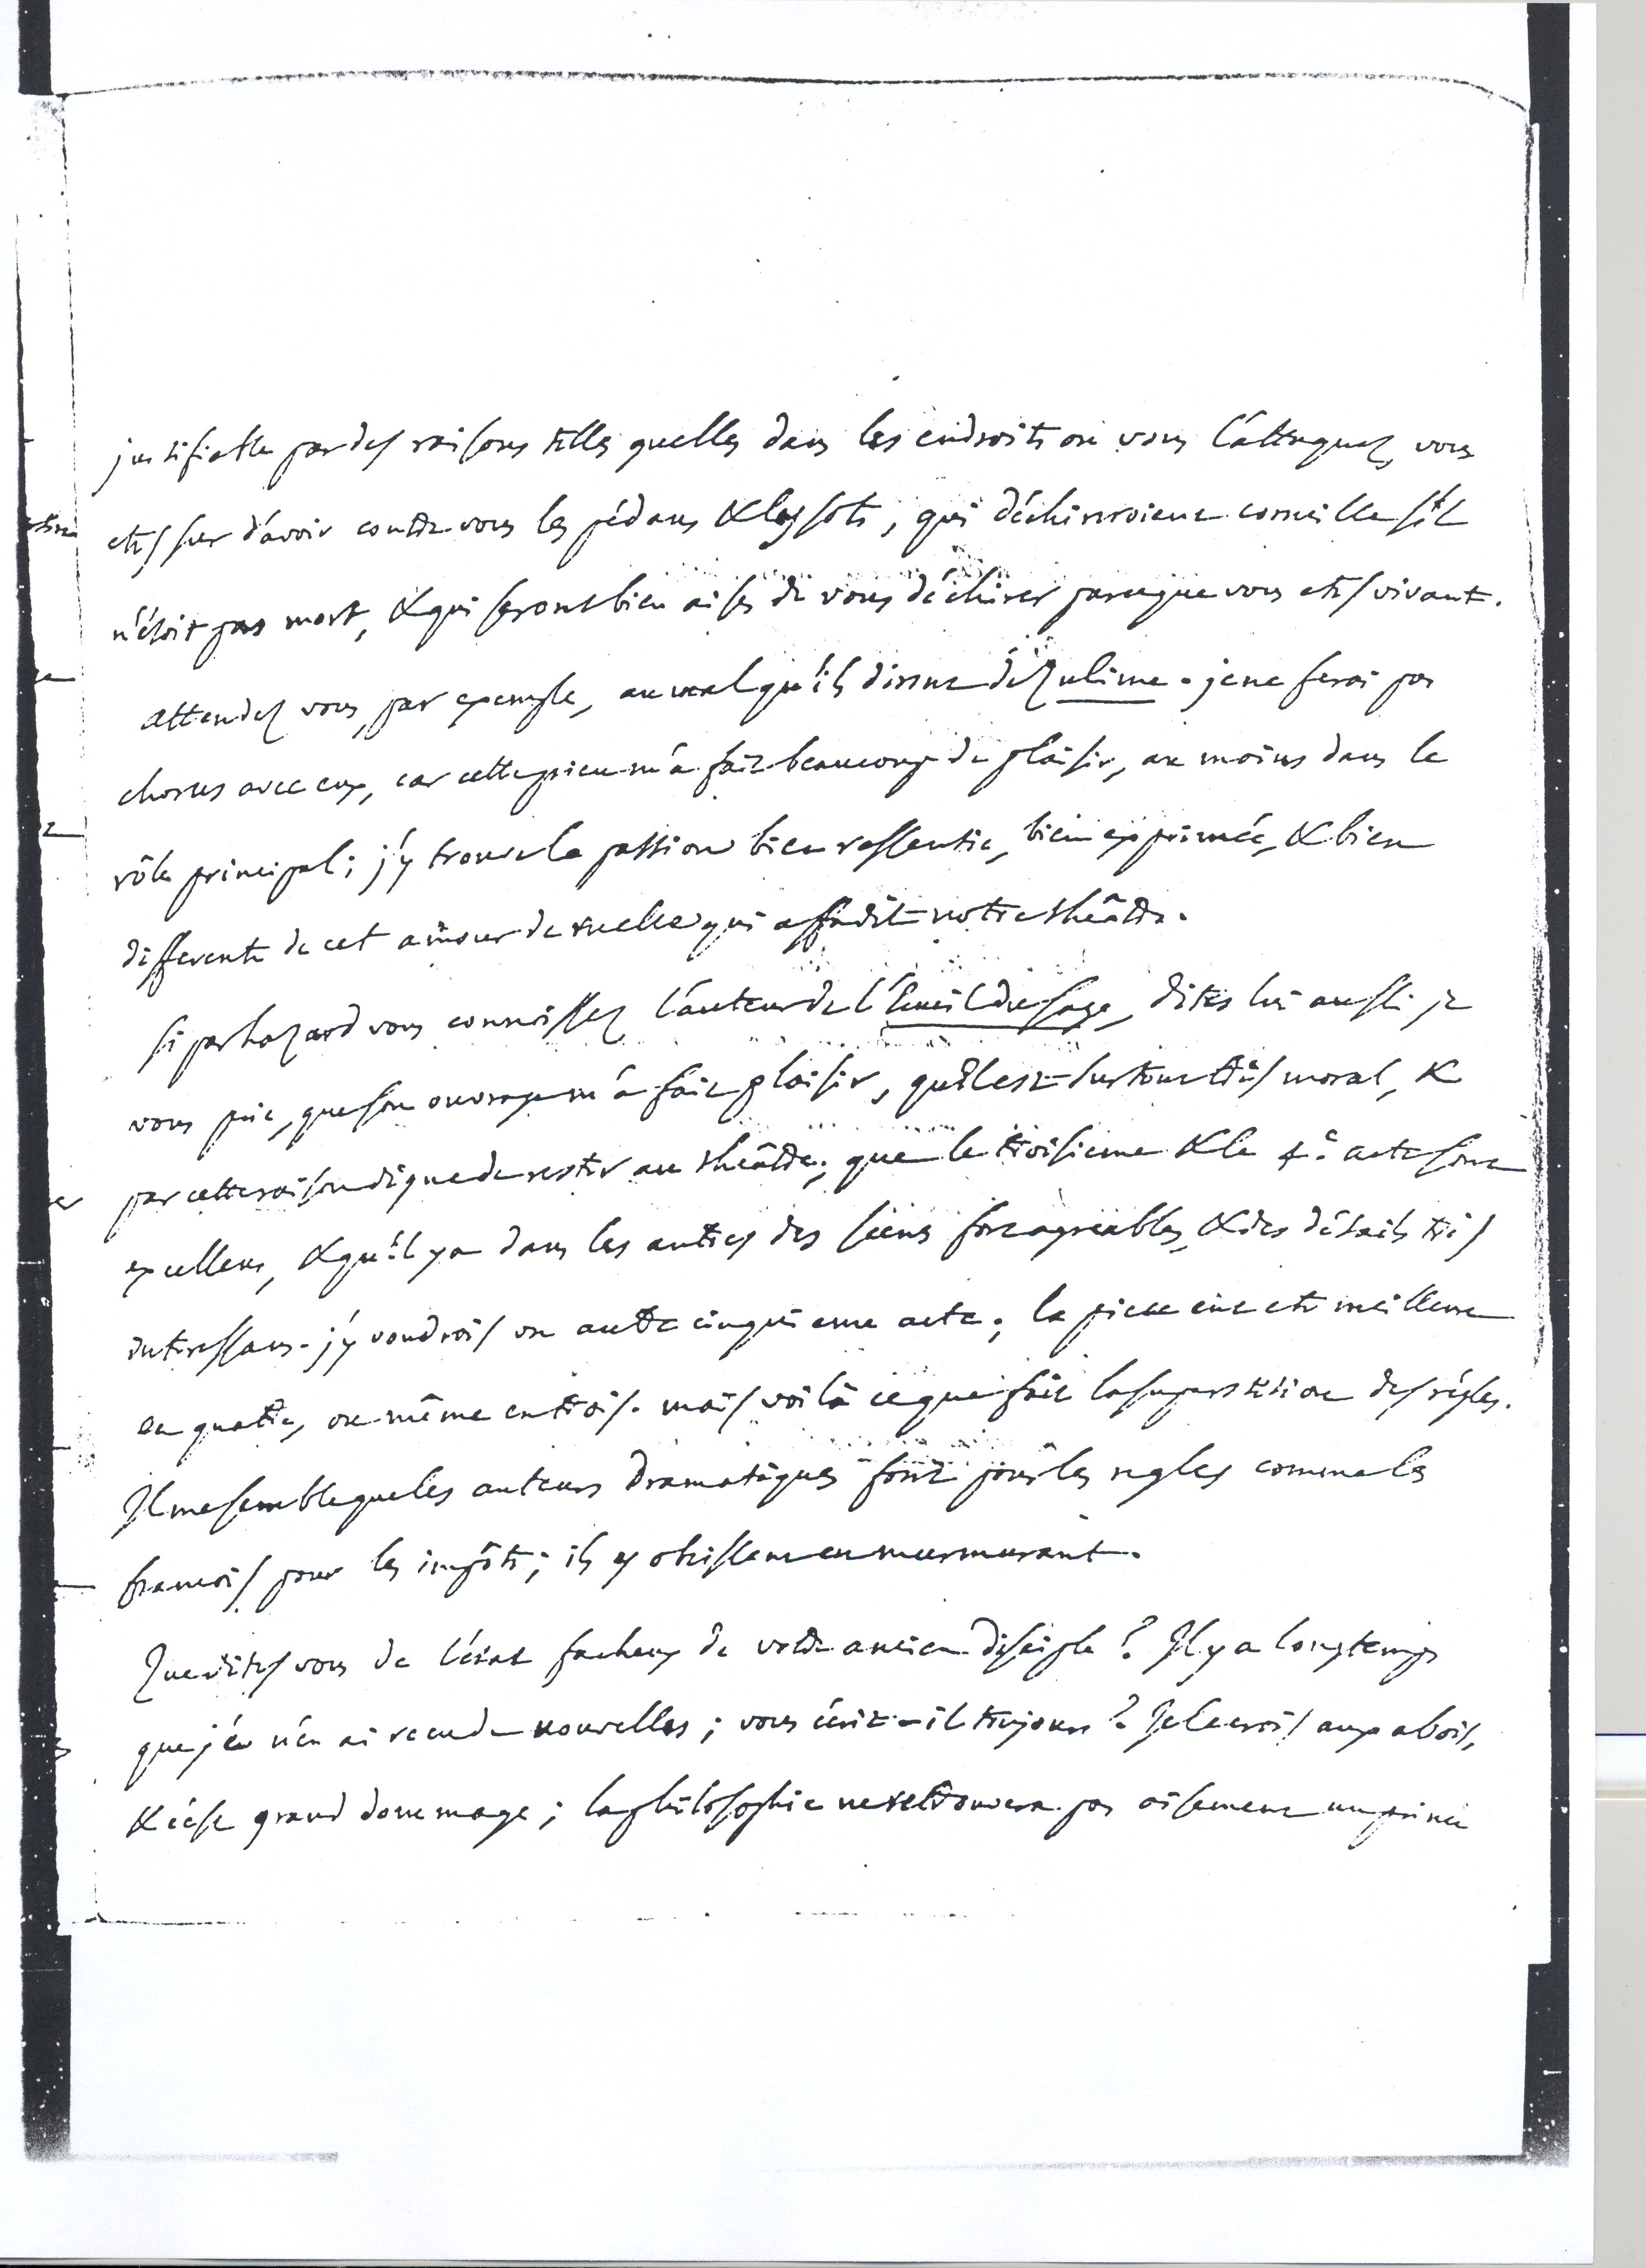 justifiable par des raisons telles quelles dans les endroits où vous l'attaquez, vous
etes sur d'avoir contre vous les pédans & les sots, qui déchireroient corneille s'il
n'étoit pas mort, & qui seront bien aises de vous déchirer parceque vous etes vivant.
attendez vous, par exemple, au mal qu'ils diront de Zulime. je ne ferai pas
chorus avec eux, car cette piece m'a fait beaucoup de plaisir, au moins dans le
rôle principal; j'y trouve la passion bien ressentie, bien exprimée, & bien
differente de cet amour de ruelle qui affadit notre théâtre.
si par hazard vous connoissez l'auteur de l'Ecueil du sage, dites lui aussi je
vous prie, que son ouvrage m'a fait plaisir, qu'il est surtout très moral, &
par cette raison digne de rester au théâtre; que le troisieme & le 4e. acte sont
excellens, & qu'il y a dans les autres des scenes fort agréables, & des détails très
interessans. j'y voudrois un autre cinquieme acte; la piece eut eté meilleure
en quatre, ou même en trois. mais voilà ce que fait la superstition des règles.
Il me semble que les auteurs dramatiques font pour les regles comme les
francois pour les impôts; ils y obeissent en murmurant.
Que dites vous de l'état facheux de votre ancien disciple? Il y a longtemps
que je n'en ai recu de nouvelles; vous écrit-il toujours? Je le crois aux abois,
& c'est grand dommage; la philosophie ne retrouvera pas aisement un prince